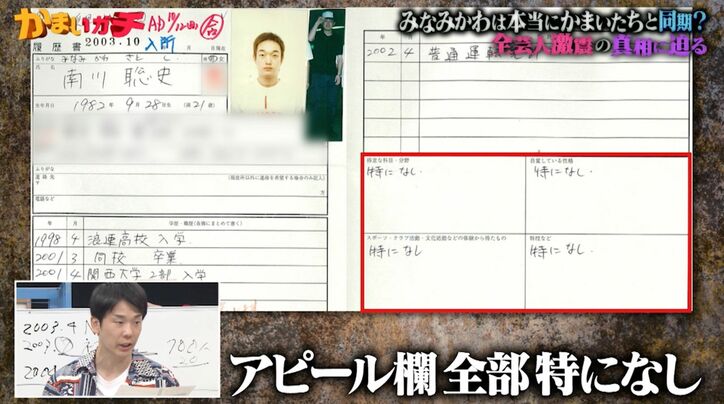 かまいガチ
みなみかわは本当にかまいたちと同期?
全芸人激震の真相に迫る
履歴書 2003.10 入所
AD 11/12
合
ふりがな みなみ かわ さと し
氏名
南川 聡史
生年月日
1982年9月28日生(満21歳)
ふりがな
連絡先
電話など
年 月 学歴・職歴(各別にまとめて書く)
1998 4 浪速高校 入学
2001 3 同校 卒業
2001 4 関西大学2部 入学
2002 4 普通運転
得意な科目・分野
特になし.
自覚している性格
特になし.
スポーツ・クラブ活動・文化活動などの体験から得たもの
特になし
特技など
特になし.
2003.4
2003.
アピール欄 全部 特になし